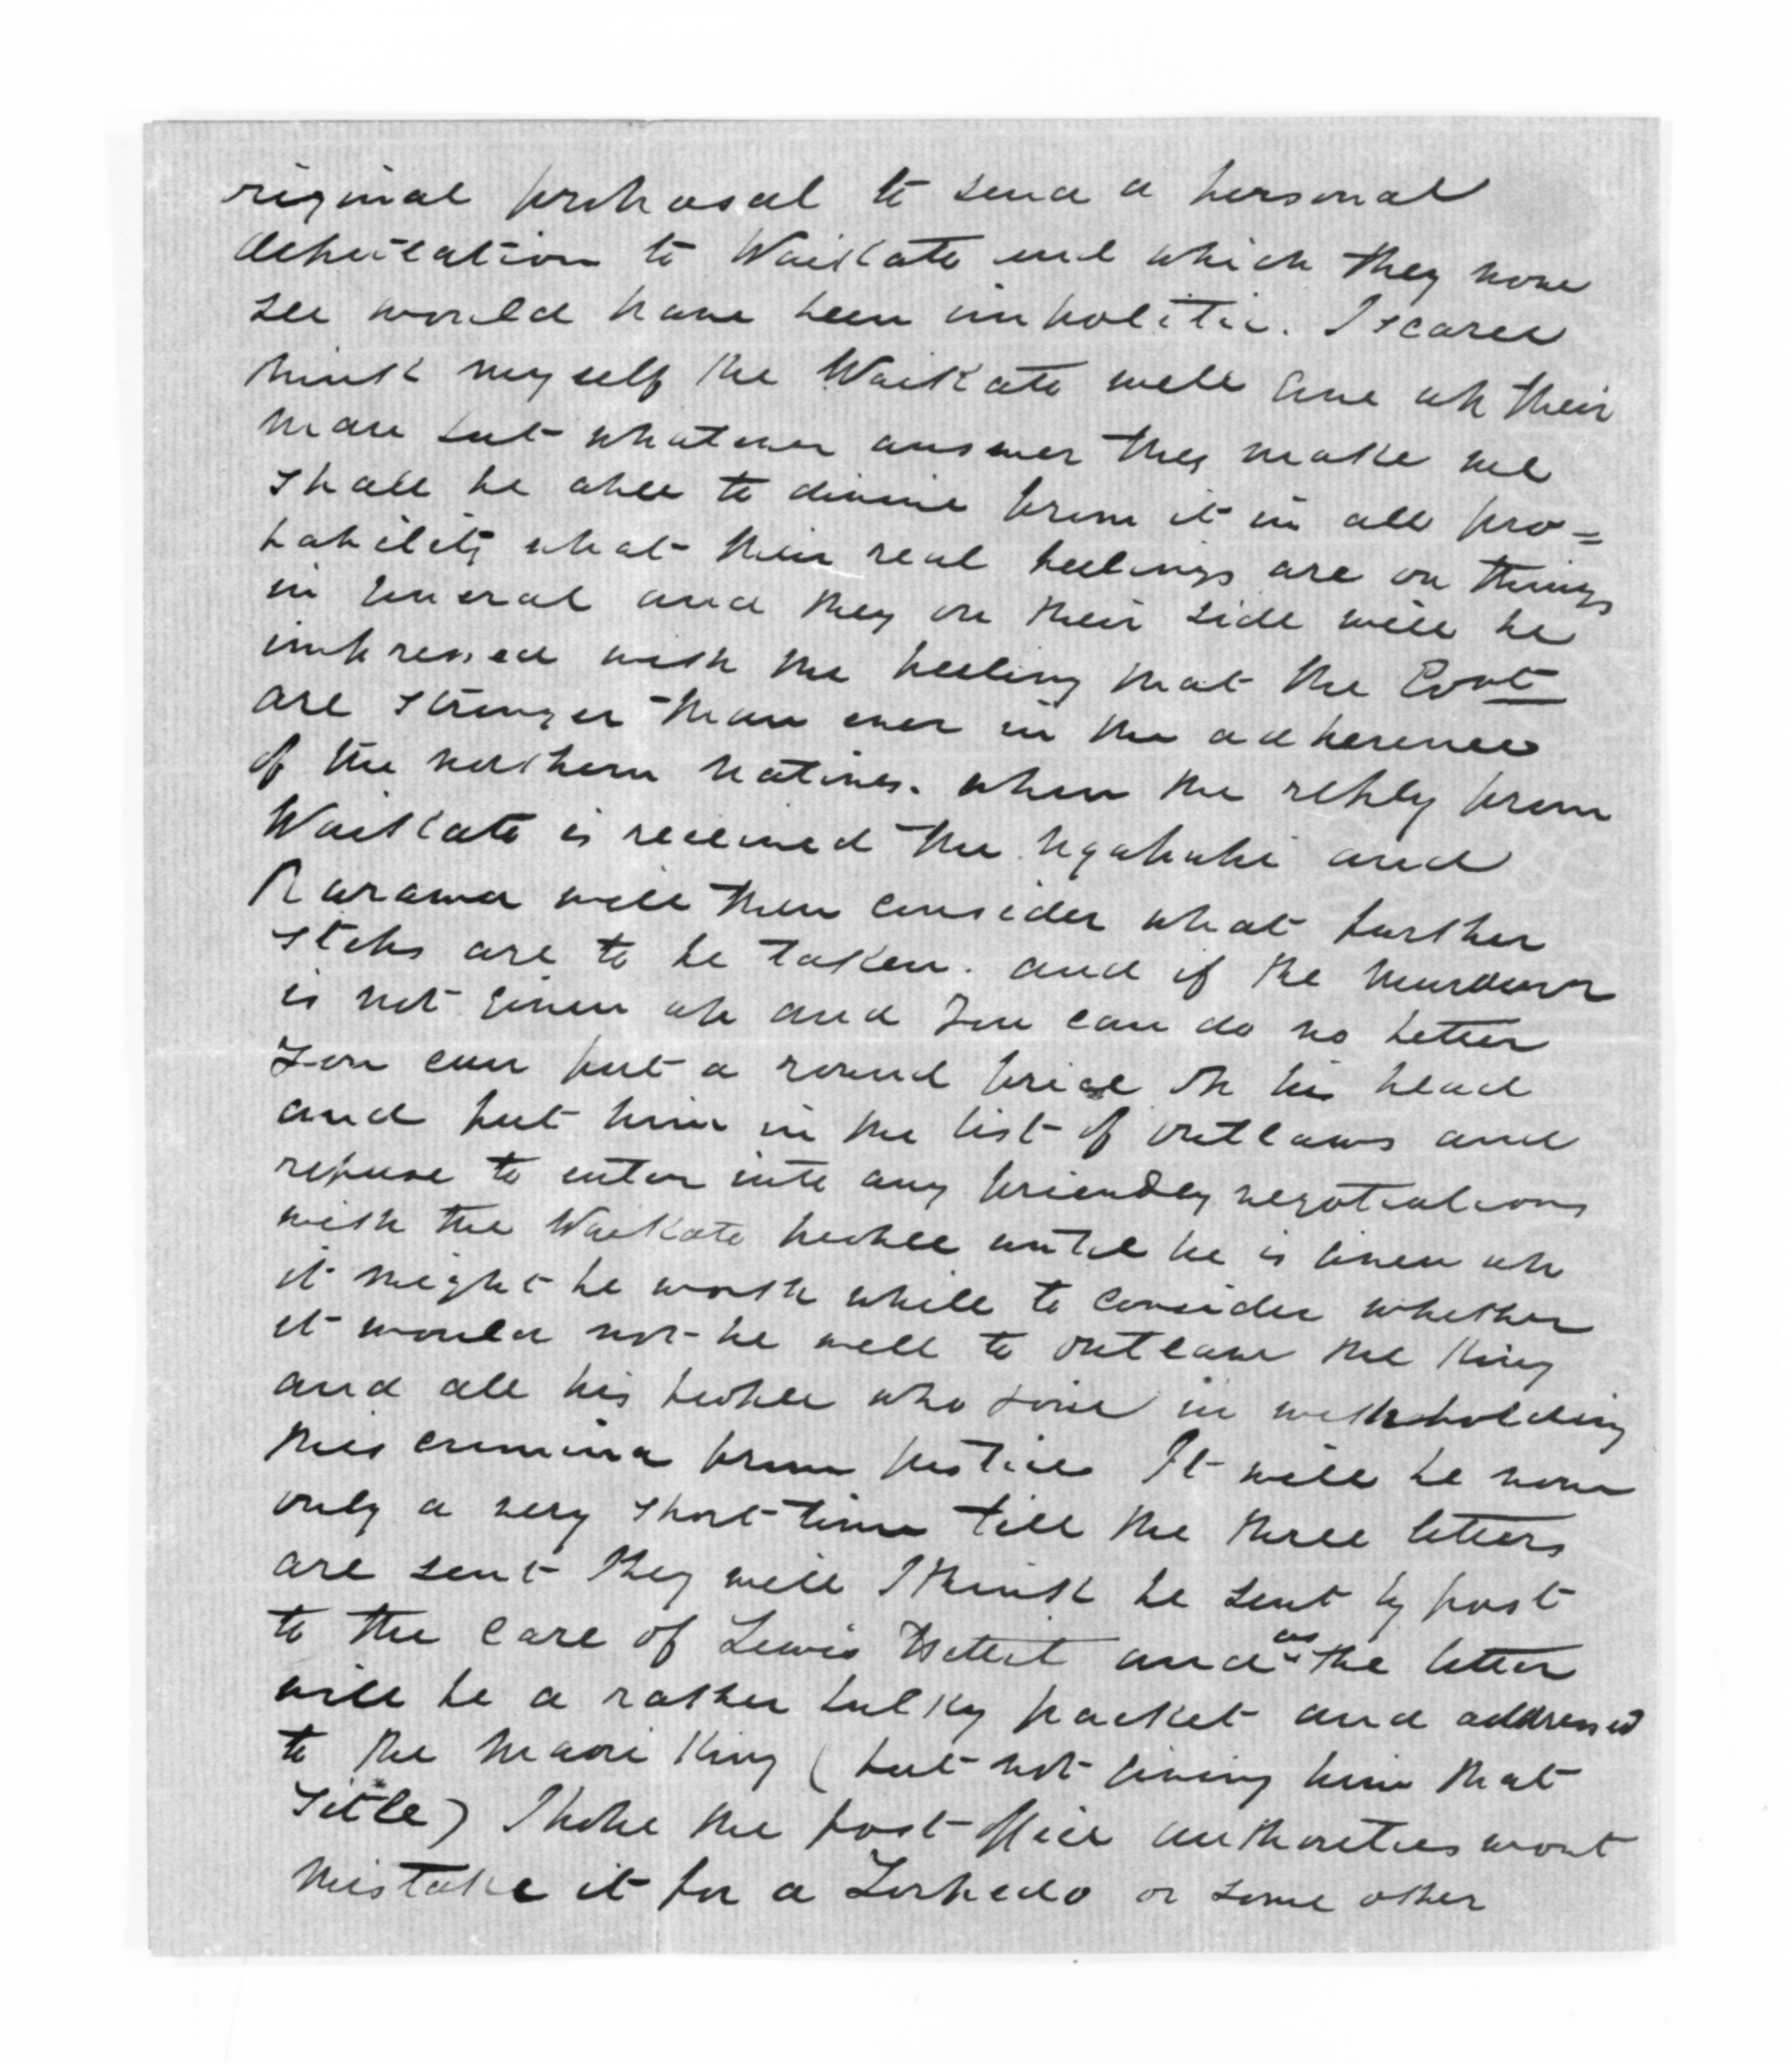 riginal proposal to send a personal
deputation to Waikato and which they now
see would have been impolitic. I scarce
think myself the Waikato will give up their
man but whatever answer they make we
shall be able to divine from it in all pro=
bability what their real feelings are on things
in general and they on their side will be
impressed with the feeling that the Govt
are stronger than ever in the adherence
of the northern natives. when the reply from
Waikato is received the Ngapuhi and
Rarawa will then consider what further
steps are to be taken. and if the murderer
is not given up and you can do no better
you can put a round price on his head
and put him in the list of outlaws and
refuse to enter into any friendly negotiations
with the Waikato people until he is given up
it might be worth while to consider whether
it would not be well to outlaw the King
and all his people who join in withholding
this crimina from justice It will be now
only a very short time till the three letters
are sent they will I think be sent by post
to the care of Lewis Hettit and as the letter
will be a rather bulky packet and addressed
to the Maori King (but not giving him that
title) I hope the post office authorities wont
mistake it for a Torpedo or some other